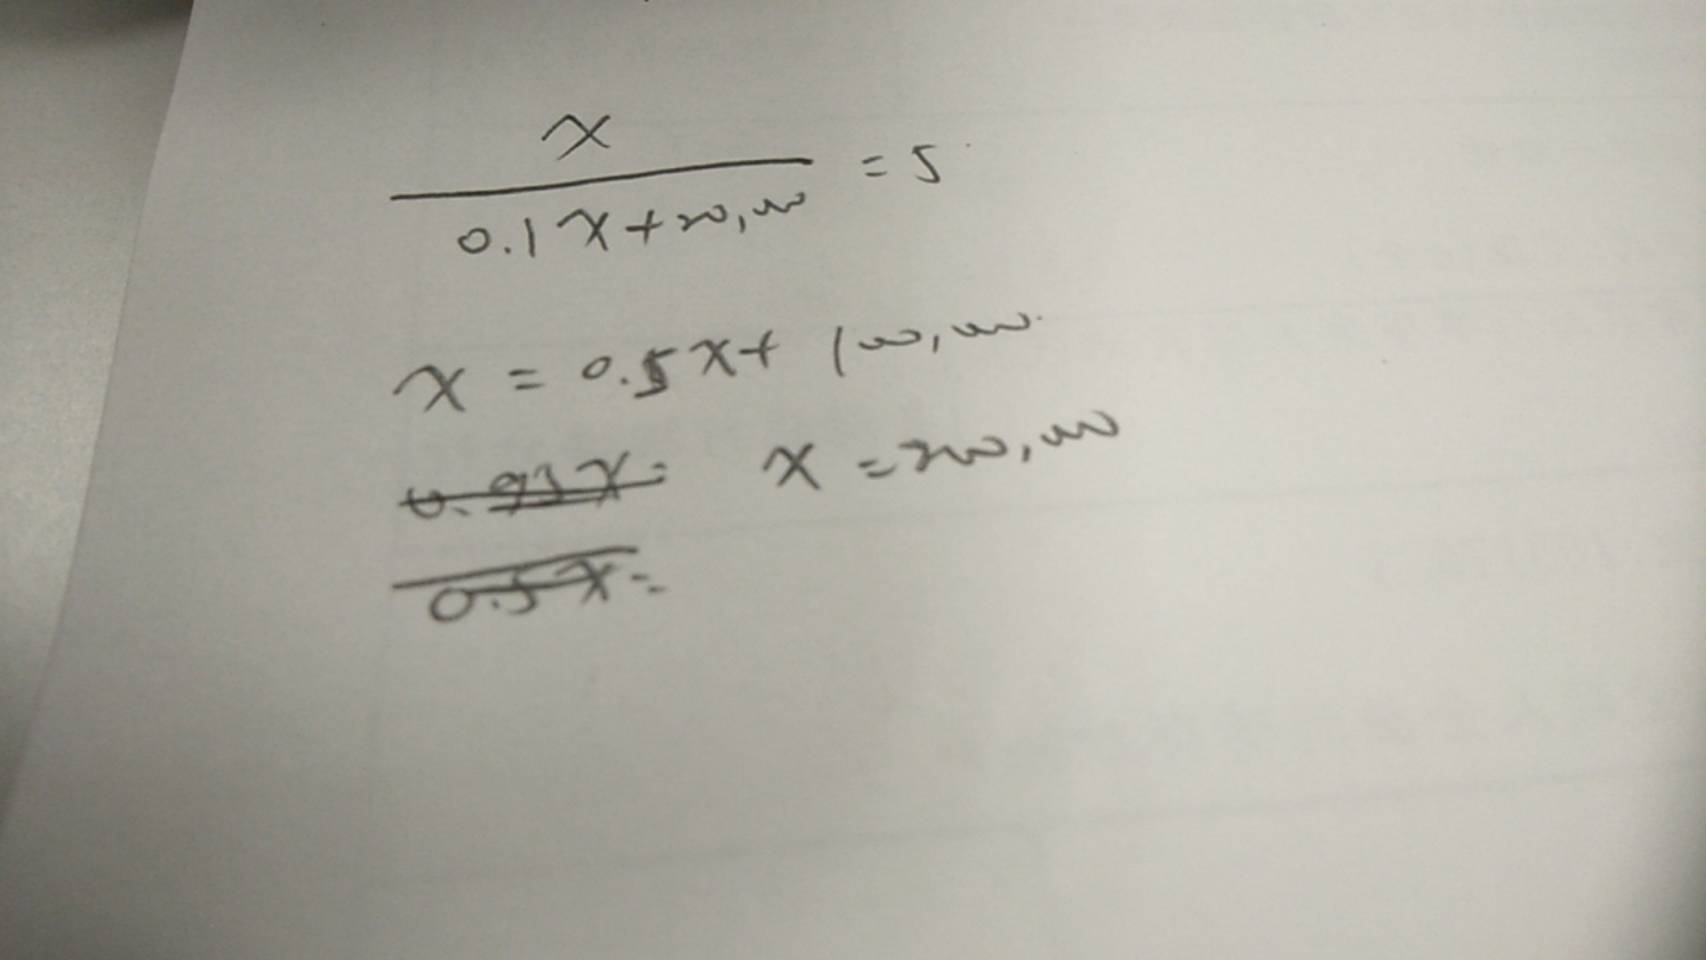 x
0.1x+20,000 = 5
x = 0.5x+ 100,000
0.95x= x = 200,000
0.5x=